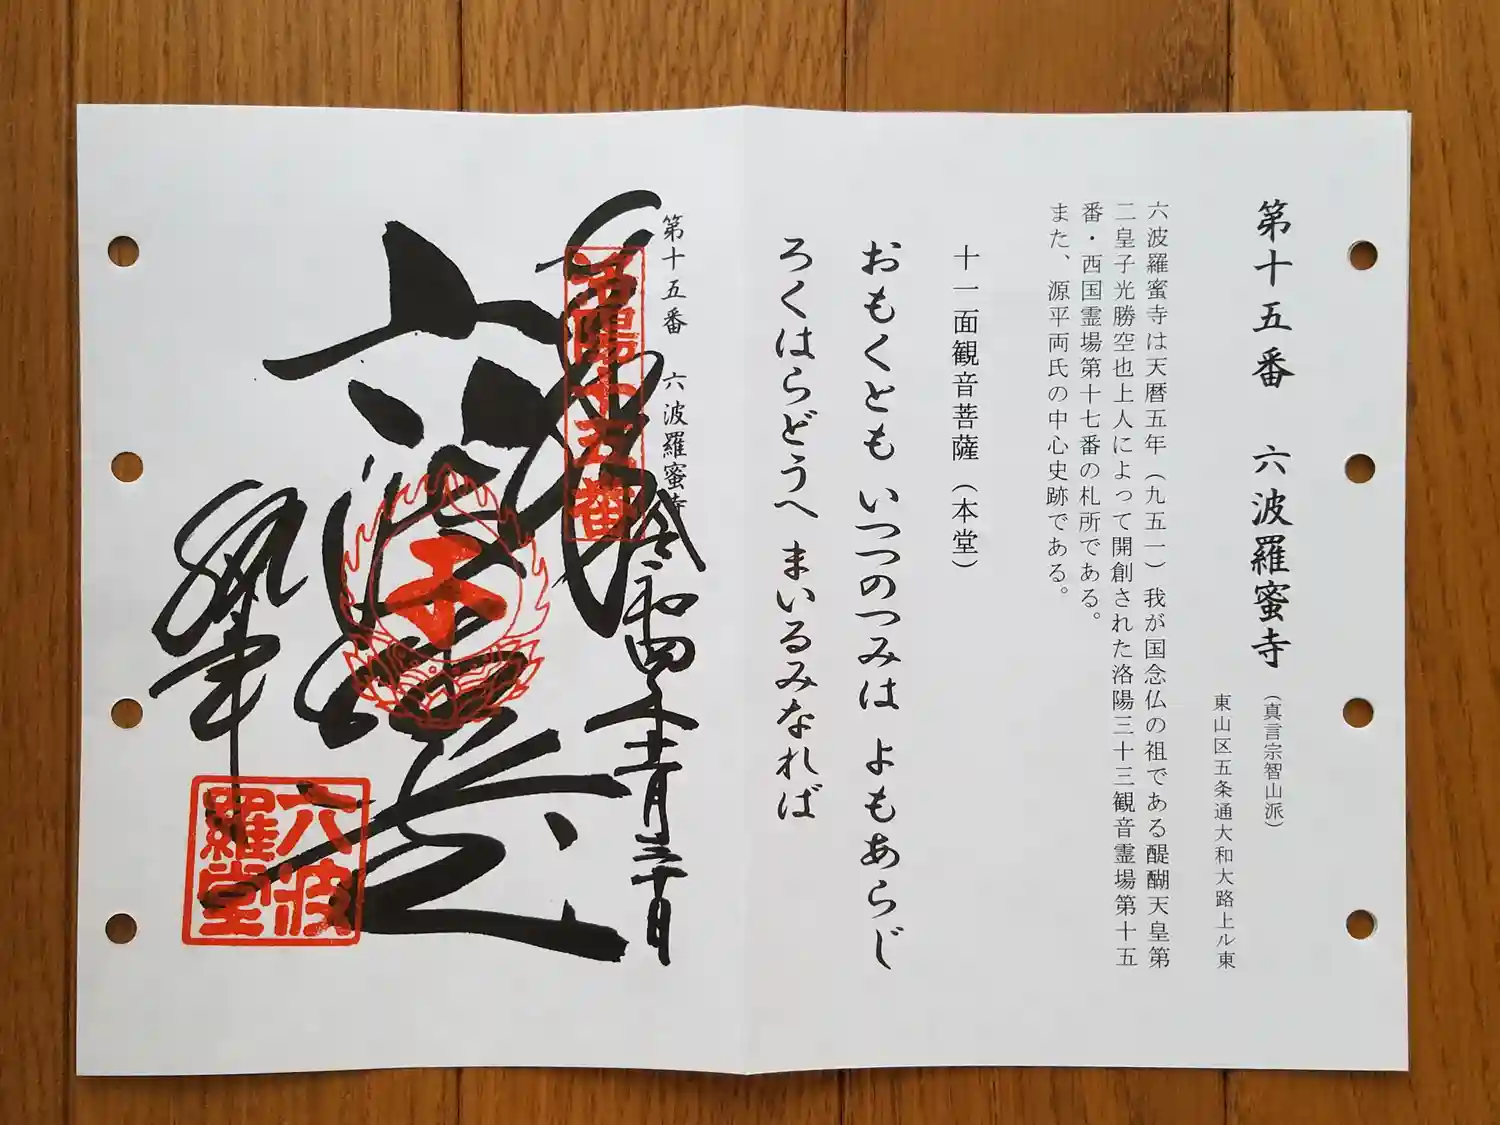 第十五番 六波羅蜜寺
(真言宗智山派)
東山区五条通大和大路上ル東
六波羅蜜寺は天暦五年(九五一)我が国念仏の祖である醍醐天皇第
二皇子光勝空也上人によって開創された洛陽三十三観音霊場第十五
番・西国霊場第十七番の札所である。
また、源平両氏の中心史跡である。
十一面観音菩薩(本堂)
おもくとも いつつのつみは よもあらじ
ろくはらどうへ まいるみなれば
第十五番 六波羅蜜寺
奉拝
洛陽十五番
令和四年十一月三十日
六波羅堂